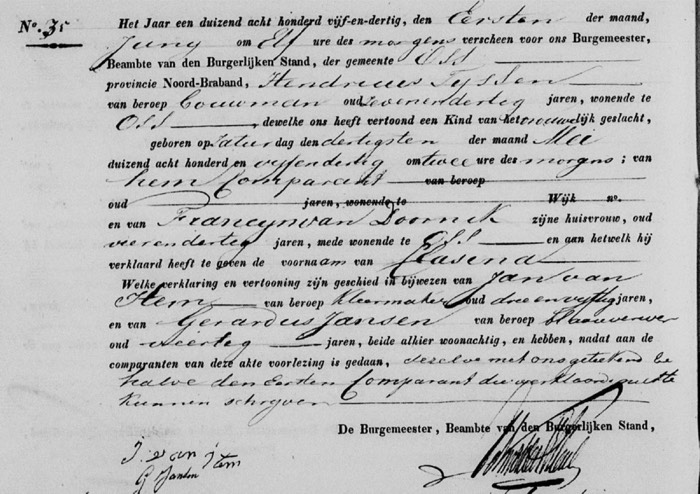 No. 35 Het Jaar een duizend acht honderd vijf-en-dertig, den Eersten der maand,
Juny om Elf ure des morgens verscheen voor ons Burgemeester,
Beambte van den Burgerlijken Stand, der gemeente Oss
provincie Noord-Braband, Hendricus Tyssen
van beroep Bouwman oud zevenendertig jaren, wonende te
Oss , dewelke ons heeft vertoond een Kind van het vrouwelijk geslacht,
geboren op Zaturdag den dertigsten der maand Mei
duizend acht honderd en vyfendertig om twee ure des morgens ; van
hem Comparant van beroep
oud jaren, wonende te Wijk no.
en van Francyn van Doornik zijne huisvrouw, oud
vierendertig jaren, mede wonende te Oss en aan hetwelk hij
verklaard heeft te geven de voornaam van Clasena
Welke verklaring en vertooning zijn geschied in bijwezen van Jan van
Hem van beroep Kleermaker oud drie en vyftig jaren,
en van Gerardus Jansen van beroep blaauwverwer
oud veertig jaren, beide alhier woonachtig, en hebben, nadat aan de
comparanten van deze akte voorlezing is gedaan, dezelve met ons getekend be
halve den Eersten Comparant die verklaarde niet te
kunnen schryven
De Burgemeester, Beambte van den Burgerlijken Stand,
J. van Hem
G Jansen